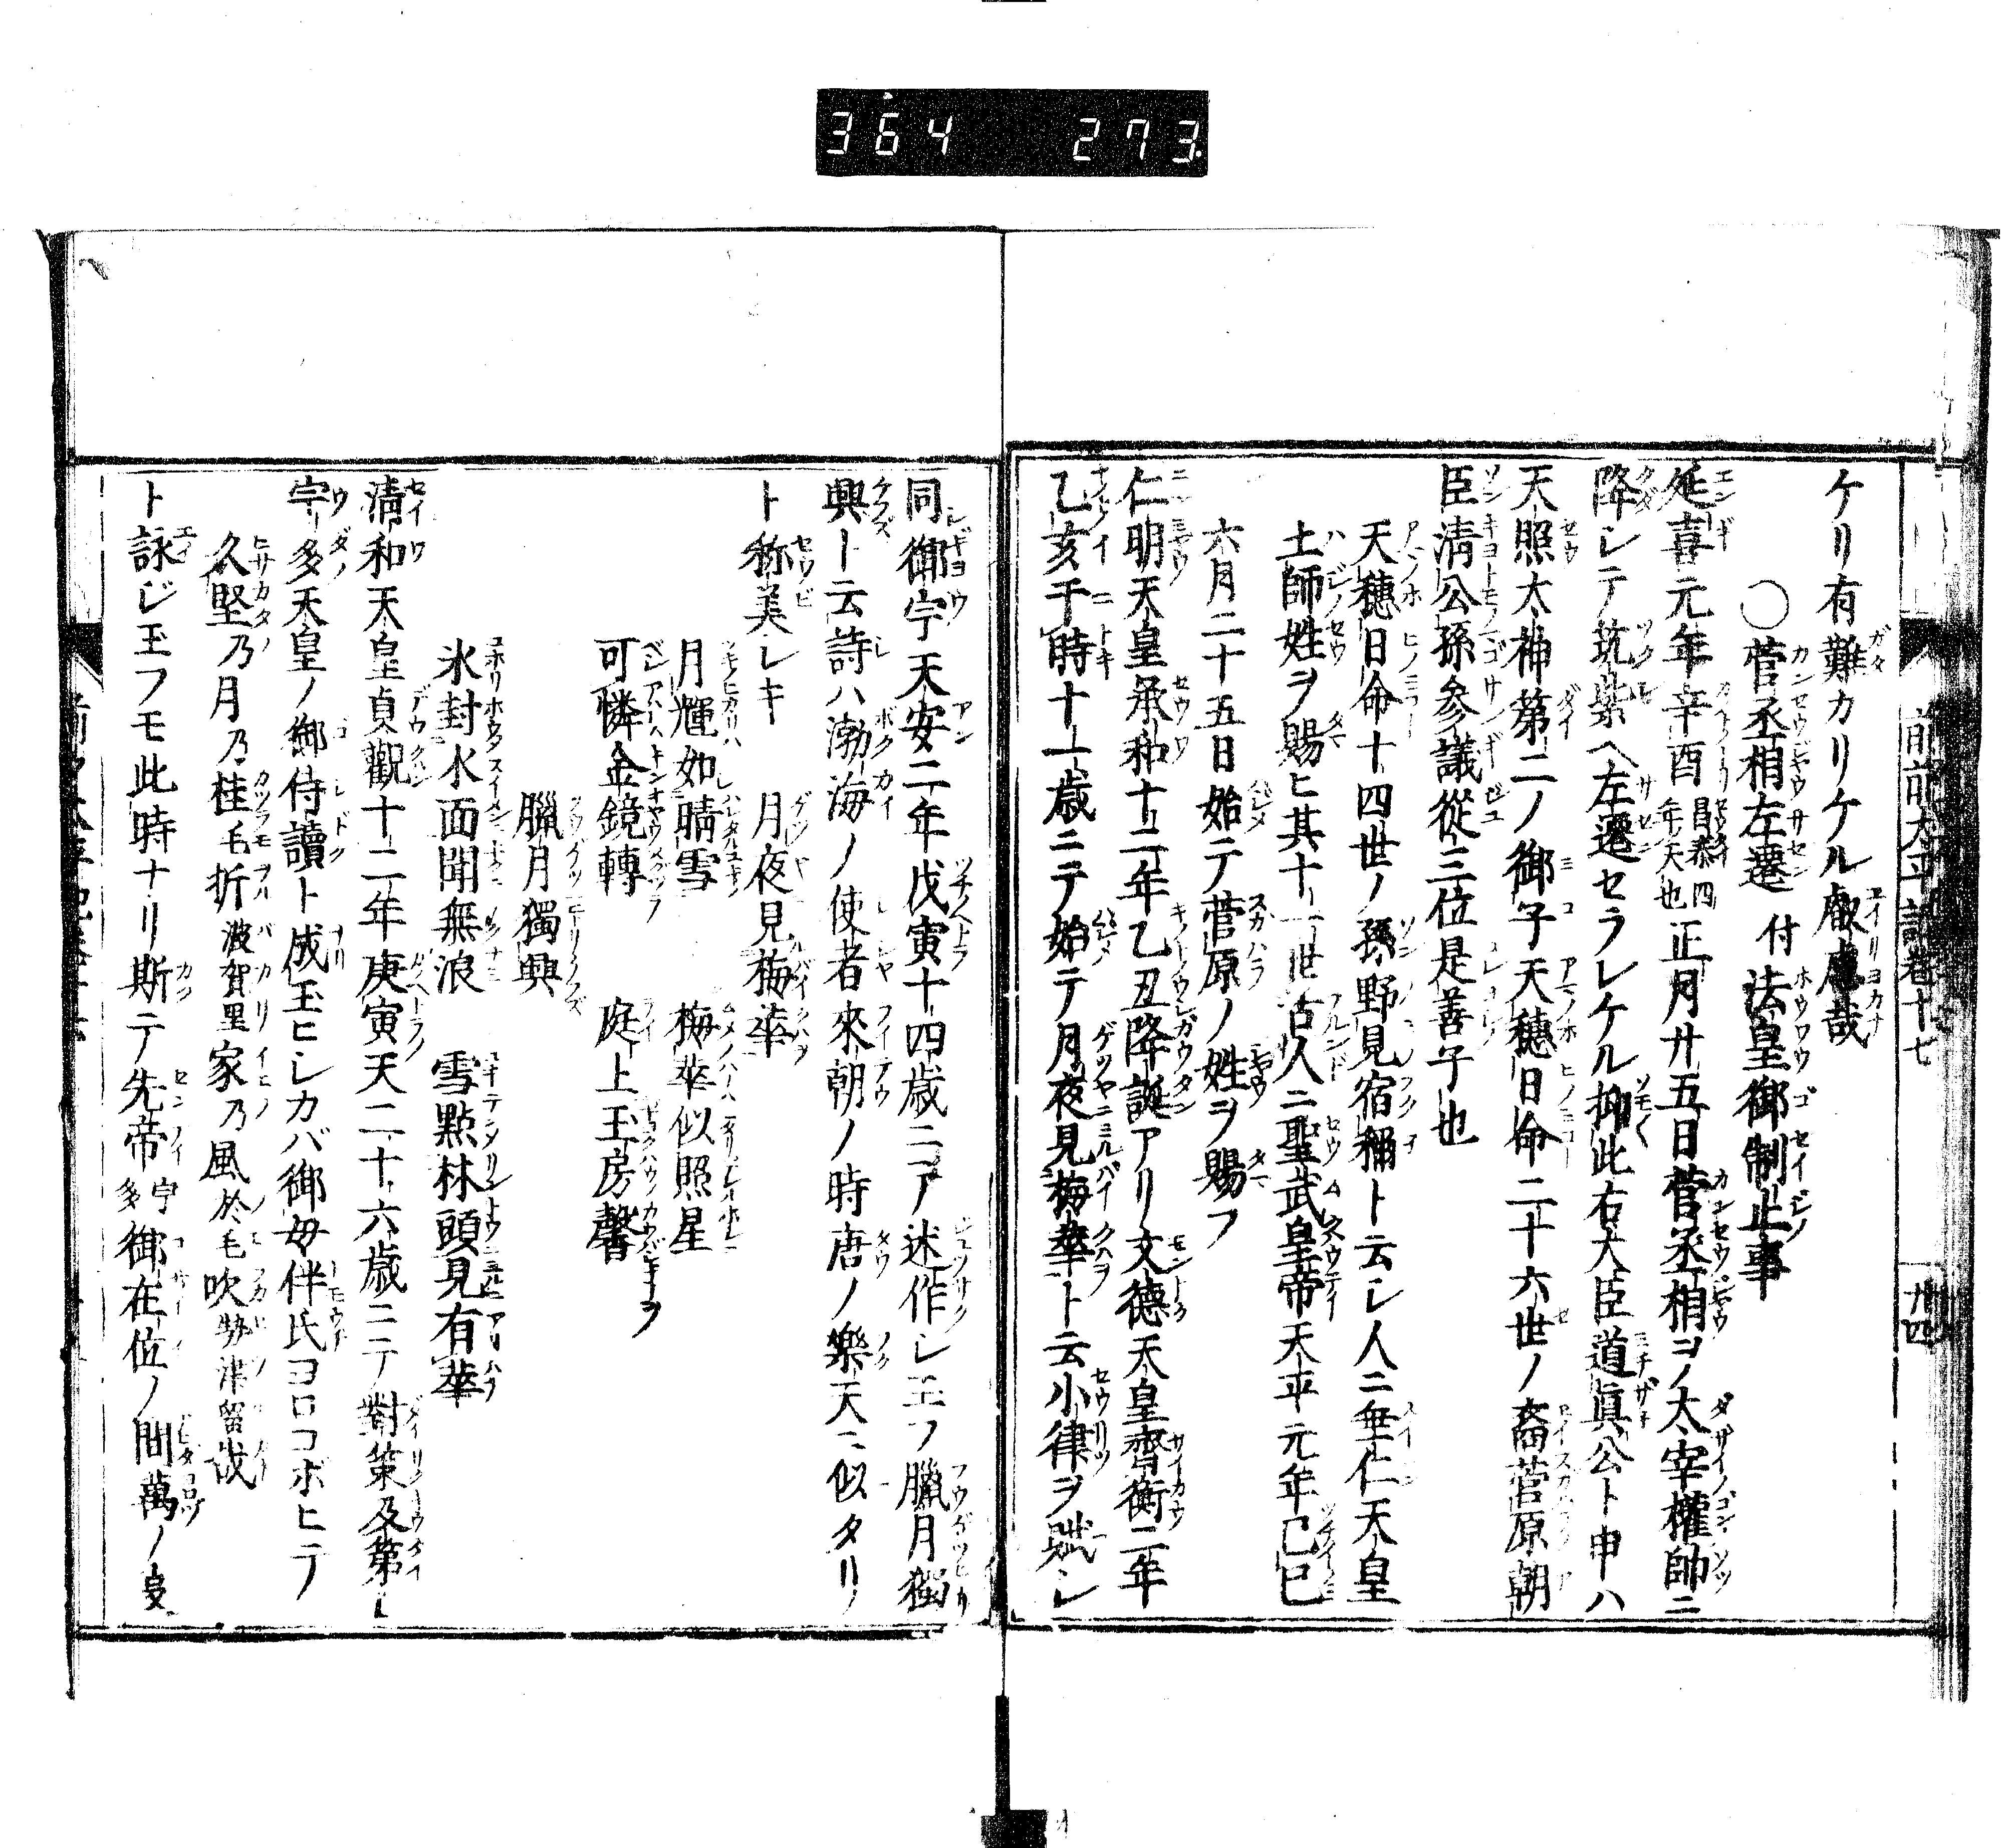 364 273
前前太平記巻十七
廿四
ケリ有難カリケル叡慮哉
○菅丞相左遷 付法皇御制止事
延喜元年辛酉昌泰四年ノ天也正月廿五日菅丞相ヲ太宰權帥ニ
降シテ筑紫ヘ左遷セラレケル抑此右大臣道眞公ト申ハ
天照太神第二ノ御子天穗日命二十六世ノ裔菅原朝
臣清公孫参議從三位是善子也
天穗日命十四世ノ孫野見宿禰ト云シ人ニ垂仁天皇
土師姓ヲ賜ヒ其十一世古人ニ聖武皇帝天平元年己巳
六月二十五日始テ菅原ノ姓ヲ賜フ
仁明天皇承和十二年乙丑降誕アリ文德天皇齊衡二年
乙亥于時十一歳ニテ始テ月夜見梅華ト云小律ヲ賦シ
同御宇天安二年戊寅十四歳ニテ述作シ玉フ臘月獨
興ト云詩ハ渤海ノ使者來朝ノ時唐ノ樂天ニ似タリ
ト称美シキ 月夜見梅華
月輝如晴雪 梅華似照星
可憐金鏡轉 庭上玉房馨
臘月獨興
氷封水面聞無浪 雪點林頭見有華
清和天皇貞觀十二年庚寅天二十六歳ニテ對策及第シ
宇多天皇ノ御侍讀ト成玉ヒシカバ御毋伴氏ヨロコボヒテ
久堅乃月乃桂毛折波賀里家乃風於毛吹勢津留哉
ト詠ジ玉フモ此時ナリ斯テ先帝宇多御在位ノ間萬ノ